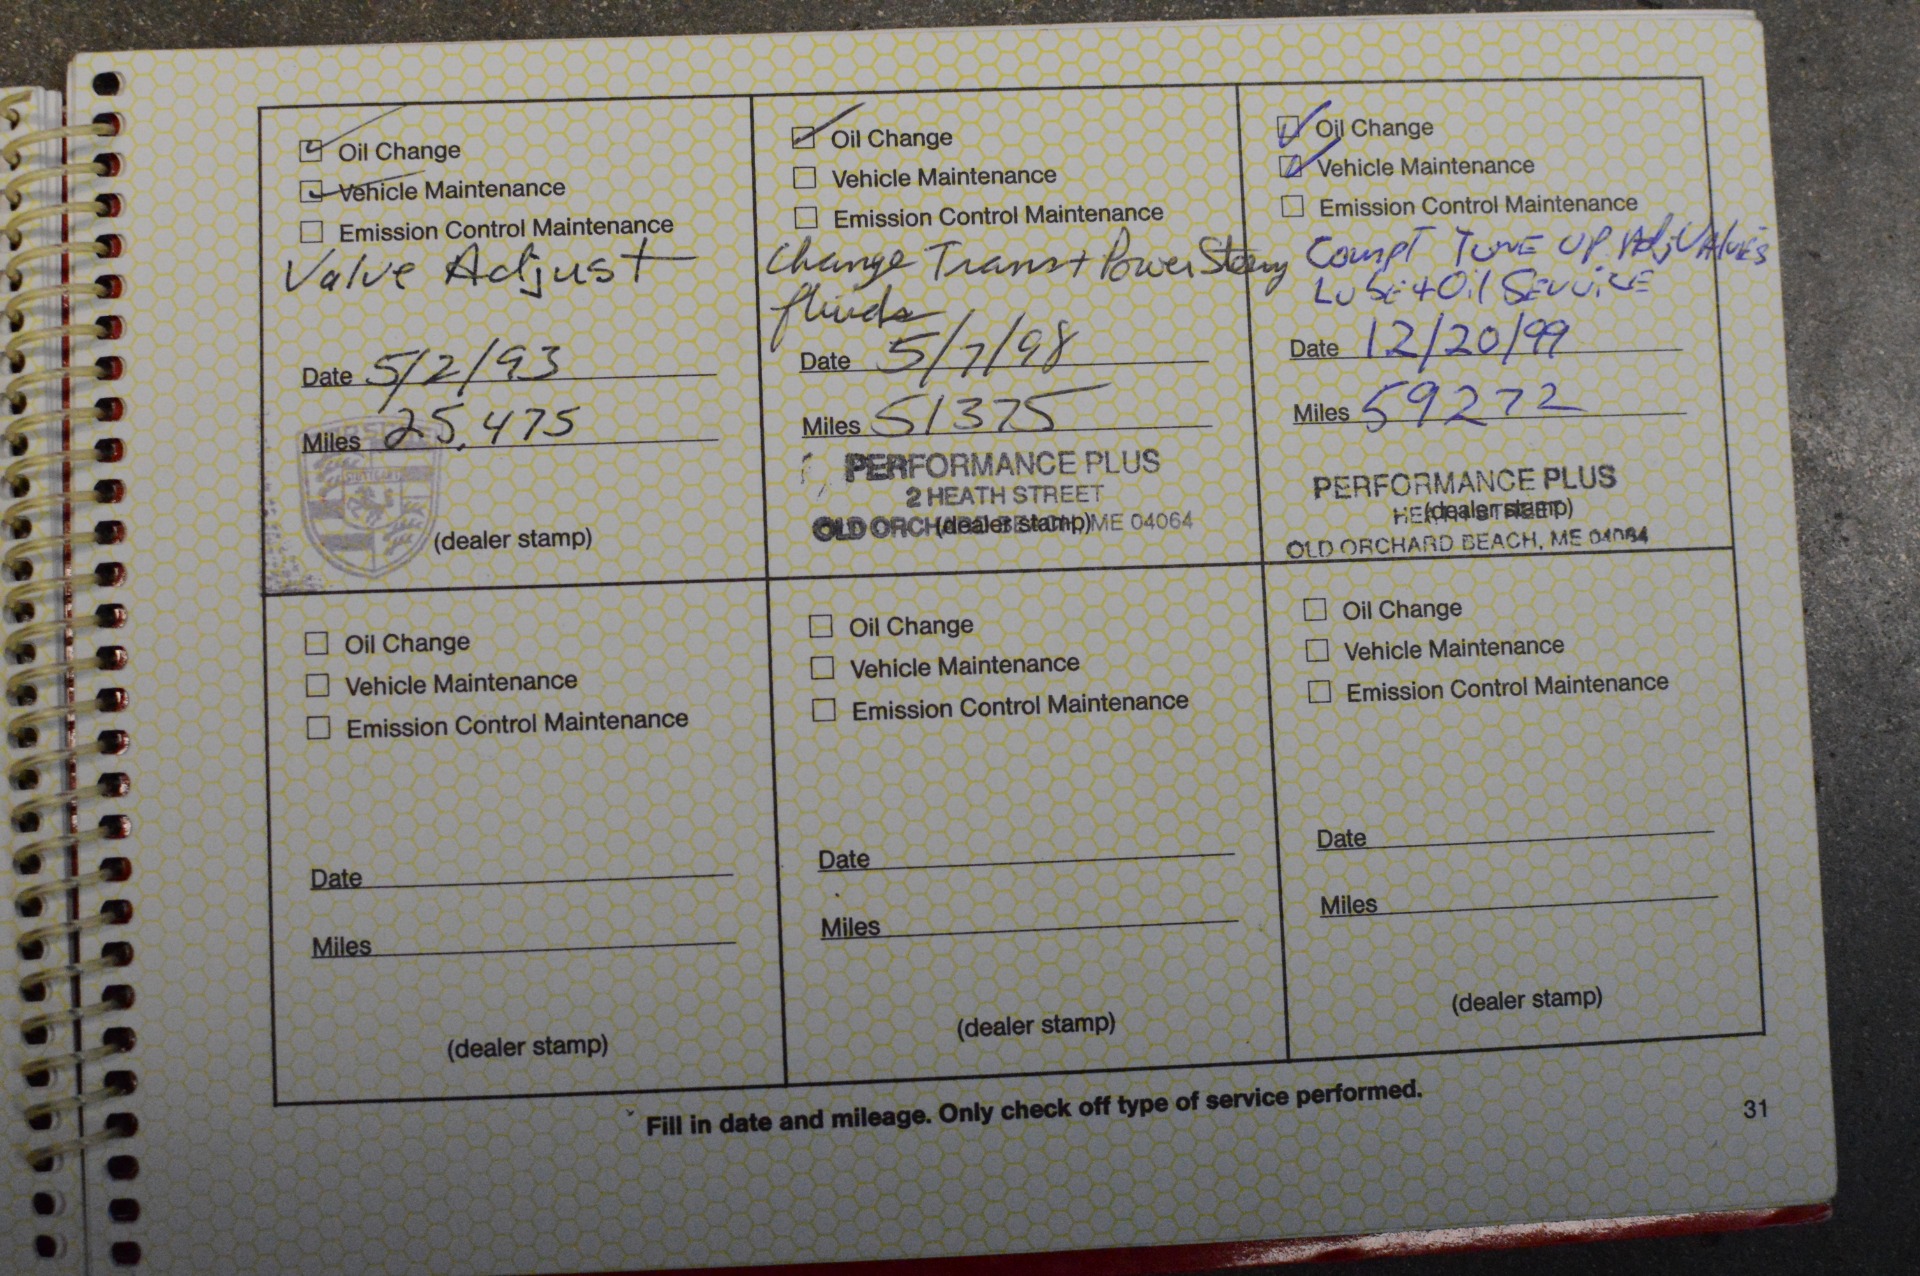 Oil Change
Vehicle Maintenance
Emission Control Maintenance
Valve Adjust
Date 5/2/93
Miles 25,475
PORSCHE
STUTTGART
(dealer stamp)
Oil Change
Vehicle Maintenance
Emission Control Maintenance
Change Trans + Power Steering
fluids
Date 5/7/98
Miles 51375
PERFORMANCE PLUS
2 HEATH STREET
OLD ORCHARD BEACH, ME 04064
(dealer stamp)
Oil Change
Vehicle Maintenance
Emission Control Maintenance
Compt Tune up Adj Valves
Lube + Oil Service
Date 12/20/99
Miles 59272
PERFORMANCE PLUS
HEATH STREET
(dealer stamp)
OLD ORCHARD BEACH, ME 04064
Oil Change
Vehicle Maintenance
Emission Control Maintenance
Date
Miles
(dealer stamp)
Oil Change
Vehicle Maintenance
Emission Control Maintenance
Date
Miles
(dealer stamp)
Oil Change
Vehicle Maintenance
Emission Control Maintenance
Date
Miles
(dealer stamp)
Fill in date and mileage. Only check off type of service performed.
31